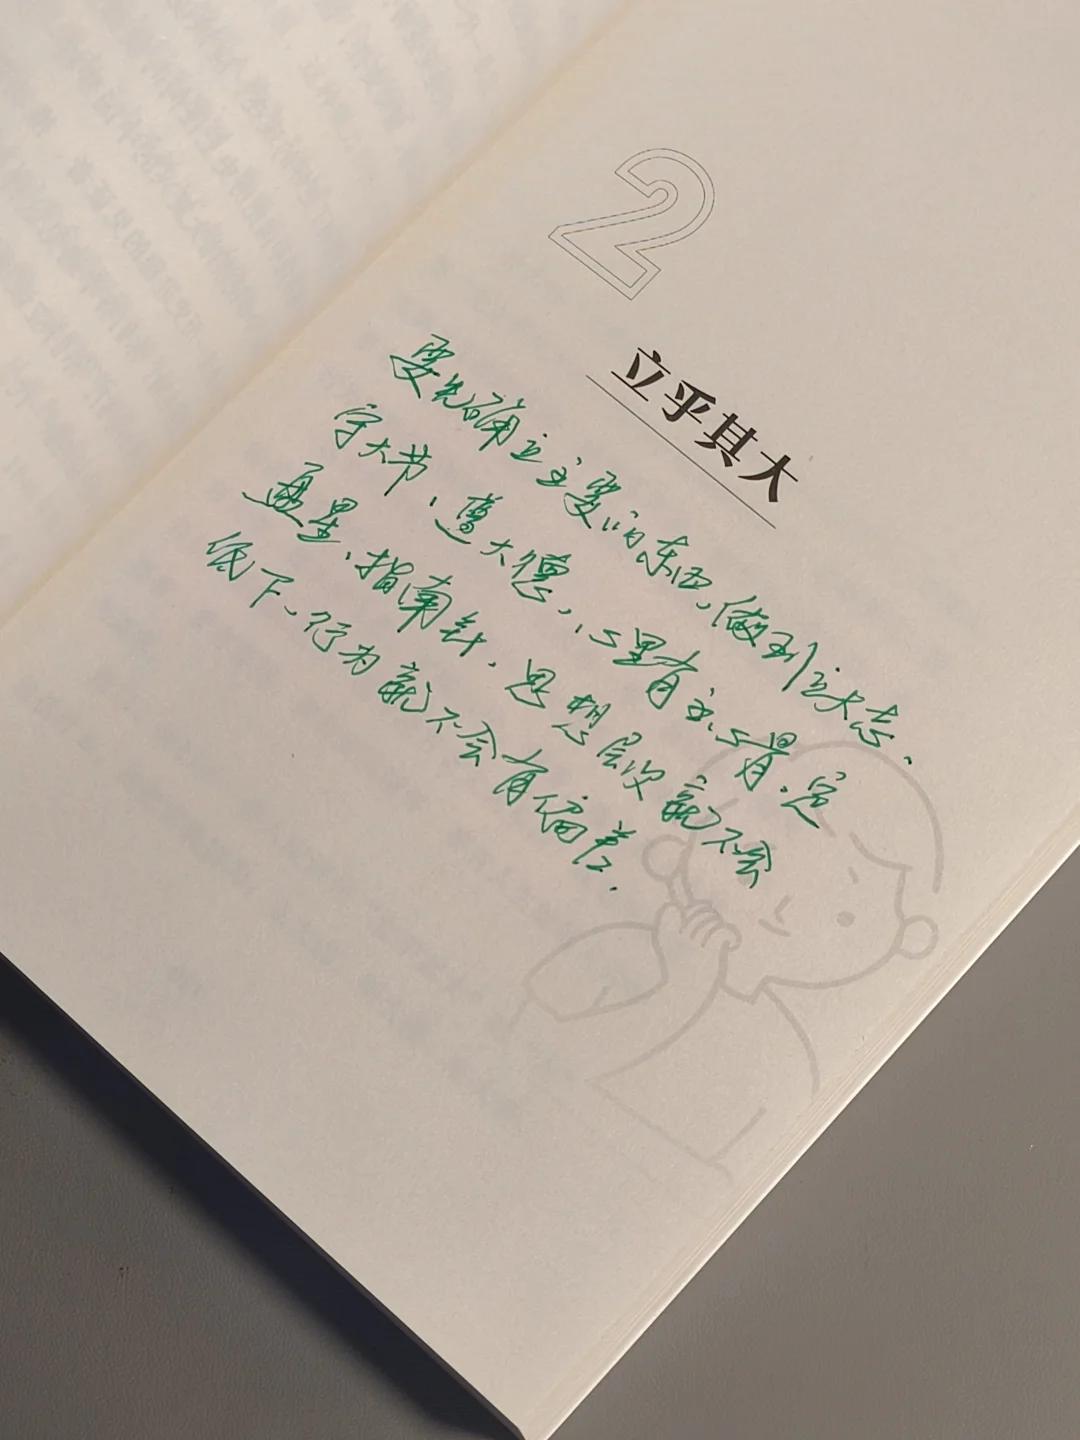 2
立乎其大
要先确立主要的东西,做到立大志、
守大节、遵大德,心里有主心骨,定
盘星、指南针,思想层次就不会
低下、行为就不会有偏差.